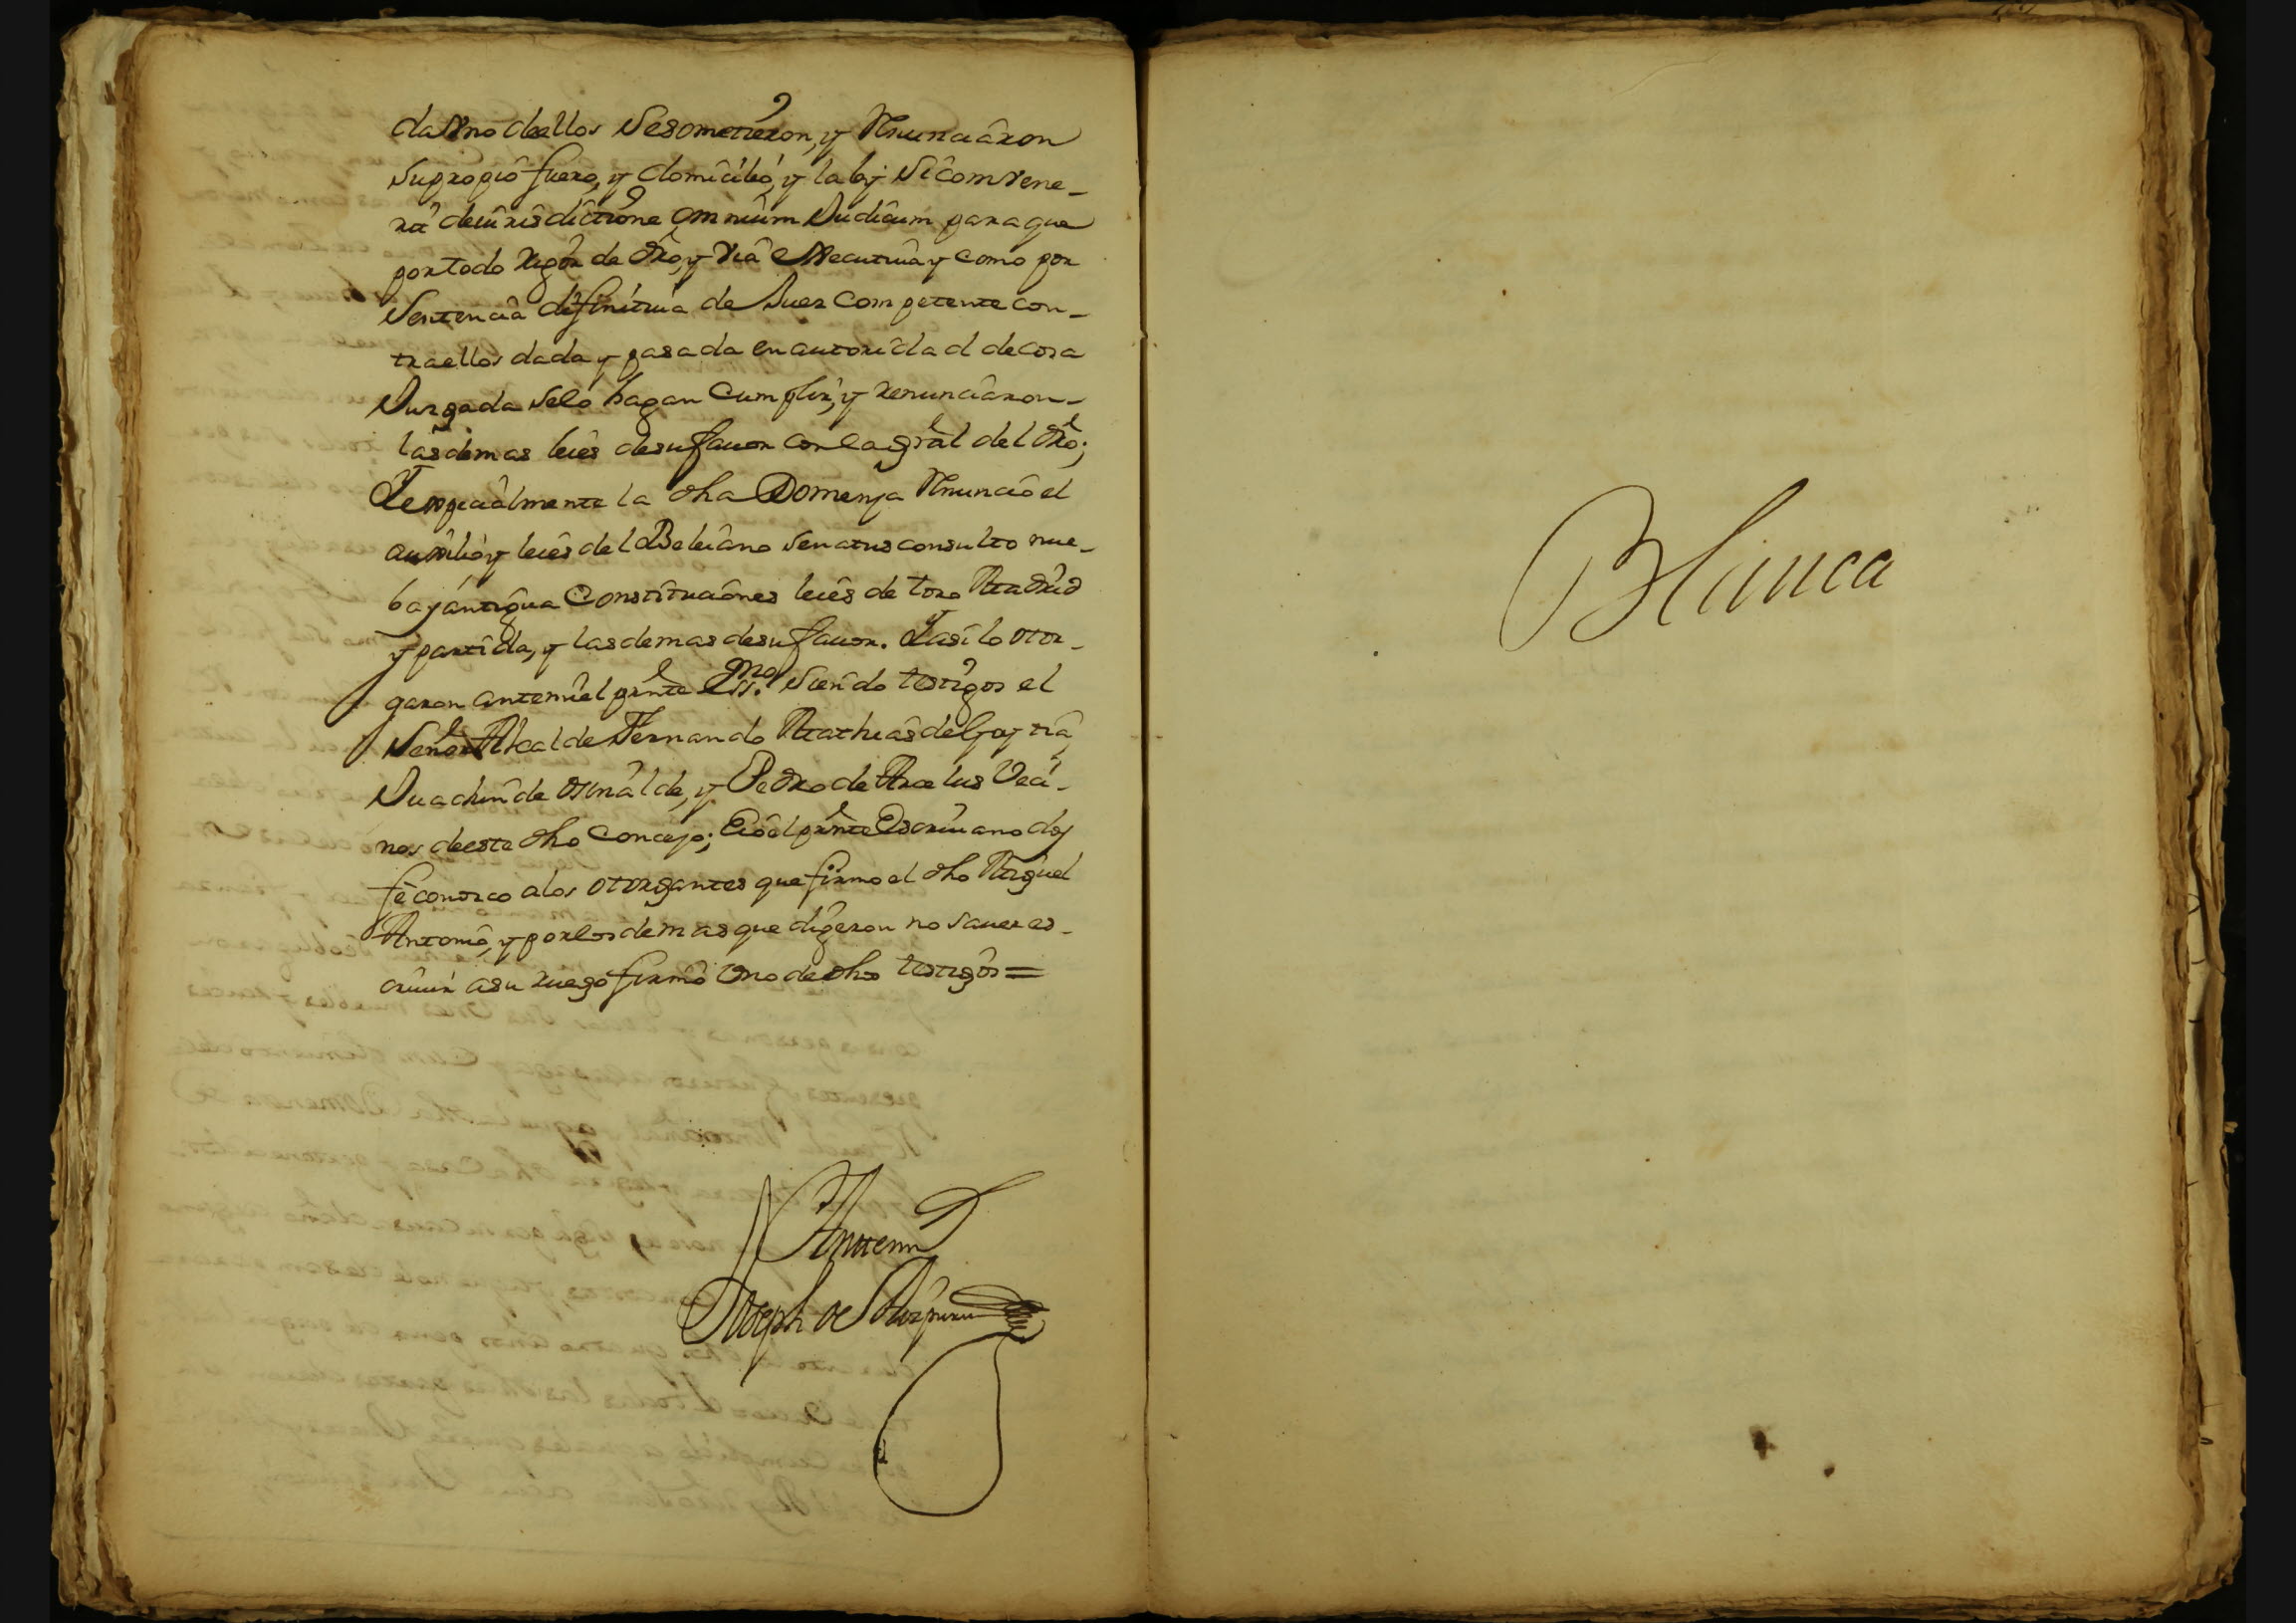 da Vno dellos Sesometieron, y Renunciaron
Supropio fuero, y domicilio, y la ley Sicomvene-
rit deiurisdictione omnium Iudicum paraque
portodo rigor de dro, y via executiua y como por
Sentencia difinitiua de Juez Competente con-
traellos dada y pasada en autoridad decosa
Jurgada selo hagan Cumplir, y renunciaron-
lasdemas leies desufauor con la gral del dro;
Y especialmente la dha Domenja Renuncio el
auxilio y leies del Beleiano Senatus consulto nue-
bayantigua Constituciones leies de toro Madrid
y partida, y lasdemas desufauor. Y asilo otor-
garon antemi el presnte Essno. Siendo testigos el
Señor Alcalde Fernando Mathias de Goytia,
Juachin de osinalde, y Pedro de Arcelus Veci-
nos deeste dho Concejo; Eio el presnte Escriuano doy
fe conozco alos otorgantes que firmo el dho Miguel
Antonio, y porlosdemas que digeron no sauer es-
criuir asu ruego firmo Vno de dhos testigos =
Anttemi
Joseph de Aizpuru
Blanca